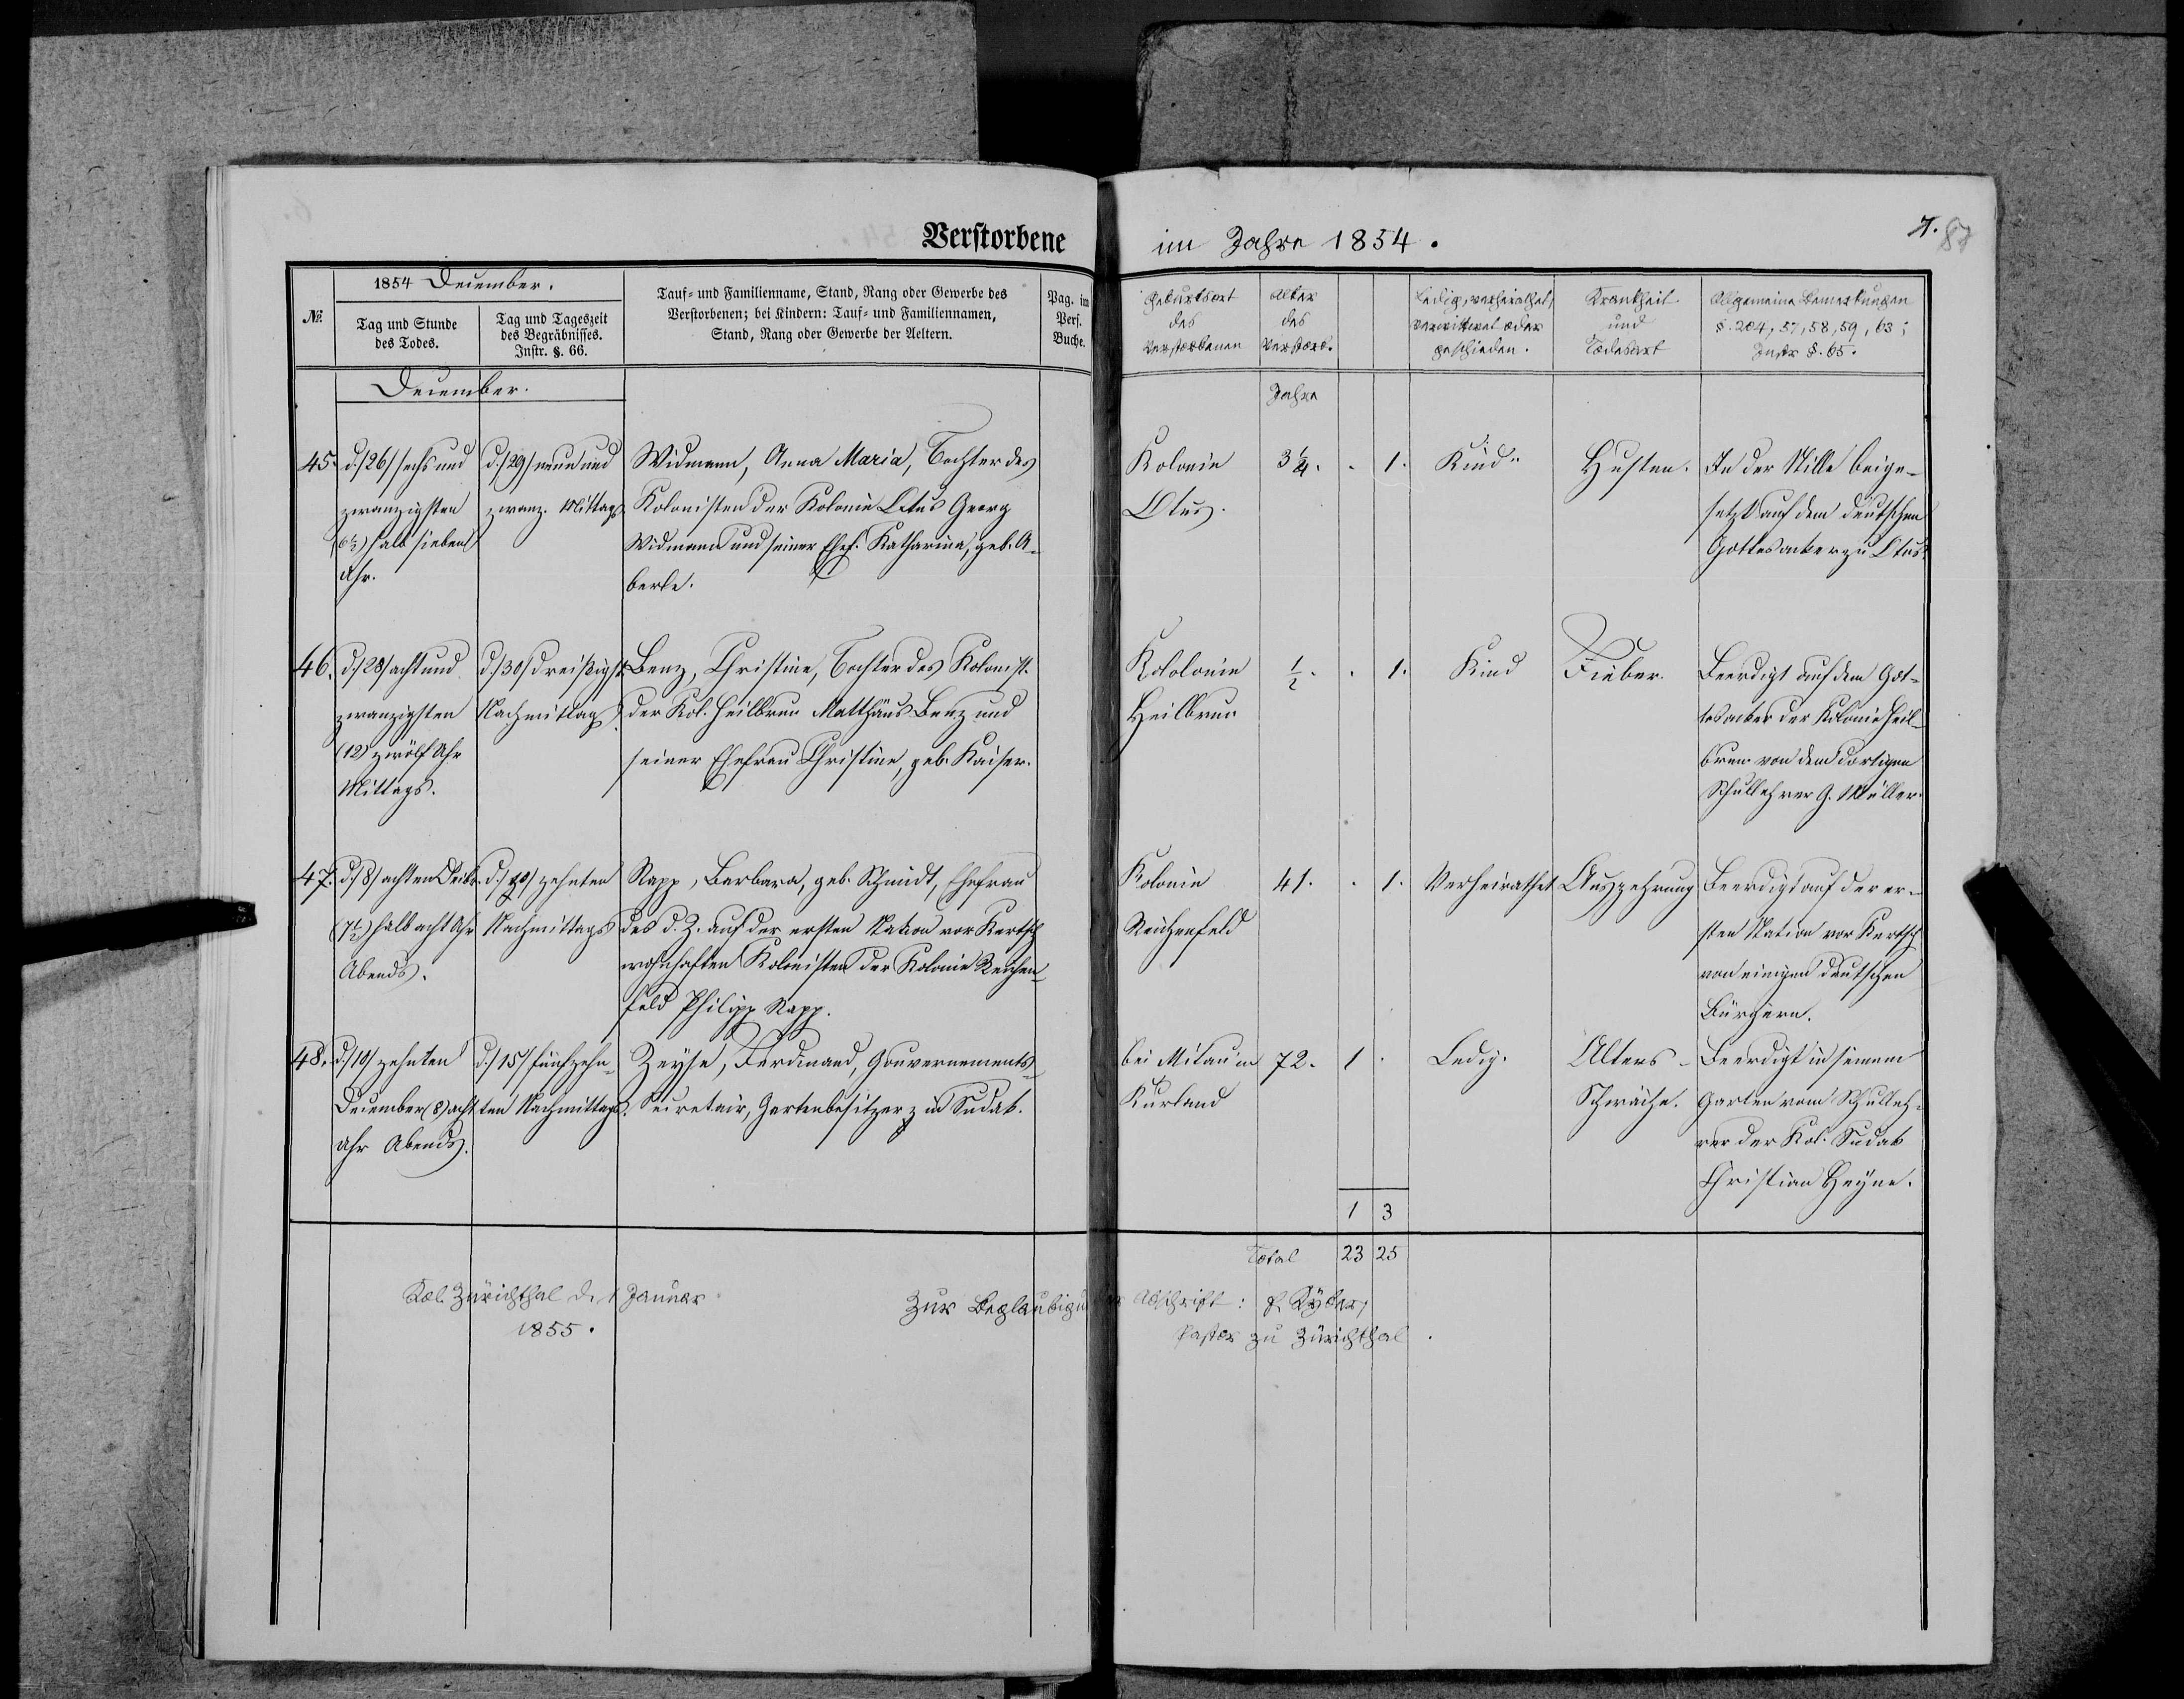 Verstorbene
im Jahre 1854.
7. 87
№.
1854 December.
Tag und Stunde
des Todes.
Tag und Tageszeit
des Begräbnisses.
Instr. §. 66.
Tauf- und Familienname, Stand, Rang oder Gewerbe des
Verstorbenen; bei Kindern: Tauf- und Familiennamen,
Stand, Rang oder Gewerbe der Aeltern.
Pag. im
Pers.
Buche.
Geburtsort
des
Verstorbenen
Alter
des
Verstorb.
Ledig, verheirathet,
verwittwet oder
geschieden.
Krankheit
und
Todesart
Allgemeine Bemerkungen
§. 204, 57, 58, 59, 63;
Instr §. 65.
December.
Jahre
45.
d./26/ sechs und
zwanzigsten
(6½) halb sieben
Uhr.
d./29/ neun und
zwanz. Mittags
Widmann, Anna Maria, Tochter des
Kolonisten der Kolonie Otus Georg
Widmann und seiner Ehef. Katharina, geb. A-
berle.
Kolonie
Otus.
3¼.
. 1.
Kind.
Husten.
In der Stille beige-
setzt auf dem deutschen
Gottesacker zu Otus.
46.
d./28/ acht und
zwanzigsten
(12) zwölf Uhr
Mittags.
d./30/ dreißigst.
Nachmittags.
Benz, Christine, Tochter des Kolonist.
der Kol. Heilbrun Matthäus Benz und
seiner Ehefrau Christine, geb. Kaiser.
Kololonie
Heilbrun
½.
. 1.
Kind
Fieber.
Beerdigt auf dem Got-
tesacker der Kolonie Heil-
brun von dem dortigen
Schullehrer G. Müller.
47.
d./8/ achten Decbr.
(7½) halb acht Uhr
Abends.
d./10/ zehnten
Nachmittags
Rapp, Barbara, geb. Schmidt, Ehefrau
des d. Z. auf der ersten Station vor Kertsch
wohnhaften Kolonisten der Kolonie Reichen-
feld Philipp Rapp.
Kolonie
Reichenfeld
41.
. 1.
Verheirathet
Auszehrung
Beerdigt auf der er-
sten Station vor Kertsch
von einigen deutschen
Bürgern.
48.
d./10/ zehnten
December (8) acht
Uhr Abends.
d./15/ fünfzehn-
ten Nachmittags.
Zeyse, Ferdinand, Gouvernements-
Secretair, Gartenbesitzer zu Sudak.
bei Mitau in
Kurland
72.
1 .
Ledig.
Alters-
Schwäche.
Beerdigt in seinem
Garten vom Schulleh-
rer der Kol. Sudak
Christian Heyne.
1 3
Total 23 25
Kol. Zürichthal d. 1 Januar
1855.
Zur Beglaubigung der Abschrift:
Pastor zu Zürichthal.